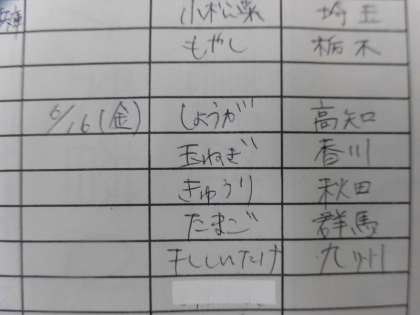 小松菜 埼玉
もやし 栃木
6/16(金) しょうが 高知
玉ねぎ 香川
きゅうり 秋田
たまご 群馬
干ししいたけ 九州